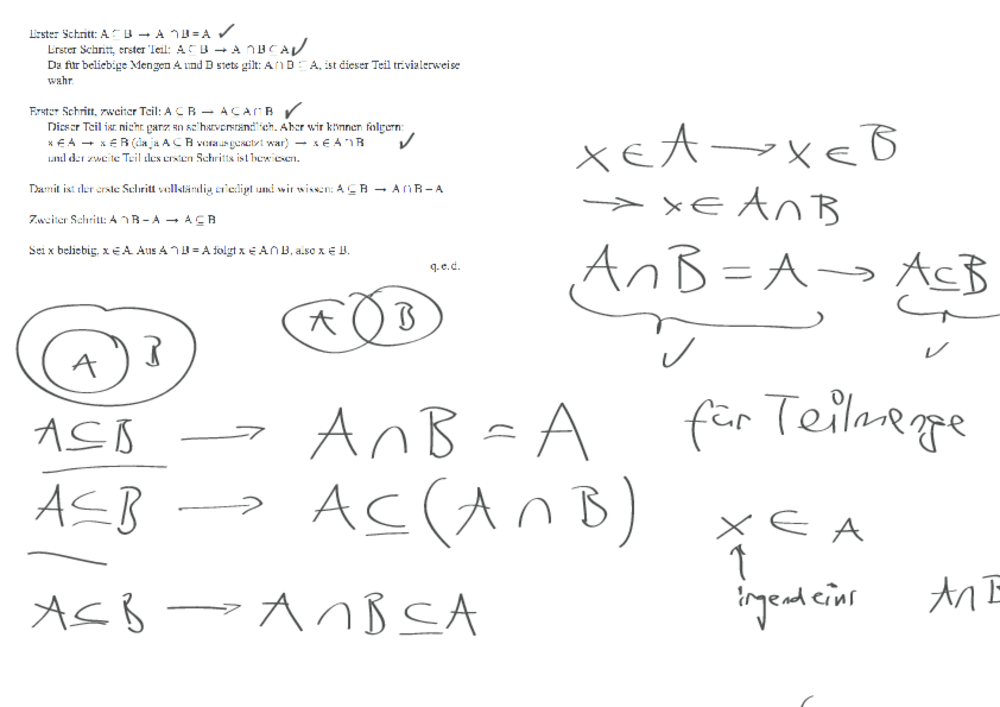 Erster Schritt: A ⊆ B → A ∩ B = A ✓
Erster Schritt, erster Teil: A ⊆ B → A ∩ B ⊆ A ✓
Da für beliebige Mengen A und B stets gilt: A ∩ B ⊆ A, ist dieser Teil trivialerweise
wahr.
Erster Schritt, zweiter Teil: A ⊆ B → A ⊆ A ∩ B ✓
Dieser Teil ist nicht ganz so selbstverständlich. Aber wir können folgern:
x ∈ A → x ∈ B (da ja A ⊆ B vorausgesetzt war) → x ∈ A ∩ B ✓
und der zweite Teil des ersten Schritts ist bewiesen.
Damit ist der erste Schritt vollständig erledigt und wir wissen: A ⊆ B → A ∩ B = A
Zweiter Schritt: A ∩ B = A → A ⊆ B
Sei x beliebig, x ∈ A. Aus A ∩ B = A folgt x ∈ A ∩ B, also x ∈ B.
q.e.d.
x ∈ A → x ∈ B
→ x ∈ A ∩ B
A ∩ B = A → A ⊆ B
✓ ✓
A B
A B
A ⊆ B → A ∩ B = A
für Teilmenge
A ⊆ B → A ⊆ (A ∩ B)
x ∈ A
↑
irgendeins
A ∩ B
A ⊆ B → A ∩ B ⊆ A